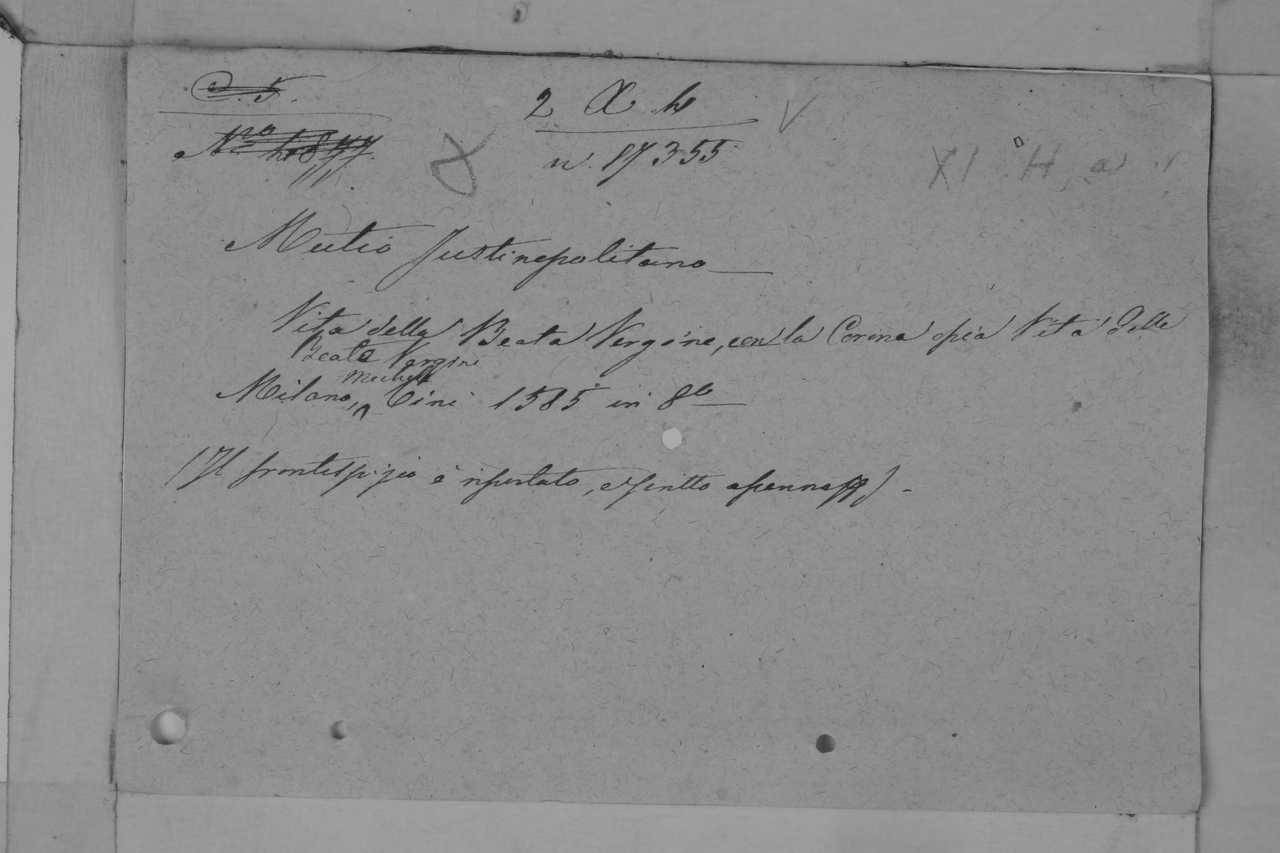 C. 5.
2 X h
n. 87355
Mutio Justinopolitano
Vita della Beata Vergine, con la Corona opia Vita delle
Beate Vergini
Michel
Milano, Tini 1585 in 8o
(Il frontespizio è riportato, e scritto a penna)